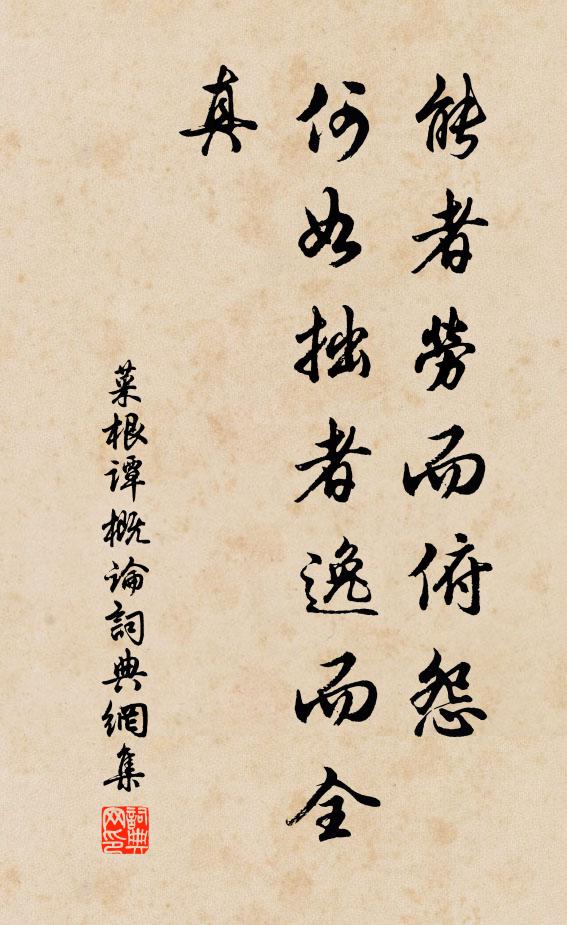 能者勞而俯怨
何如拙者逸而全
真
菜根譚概論詞典網集
詞典
网印